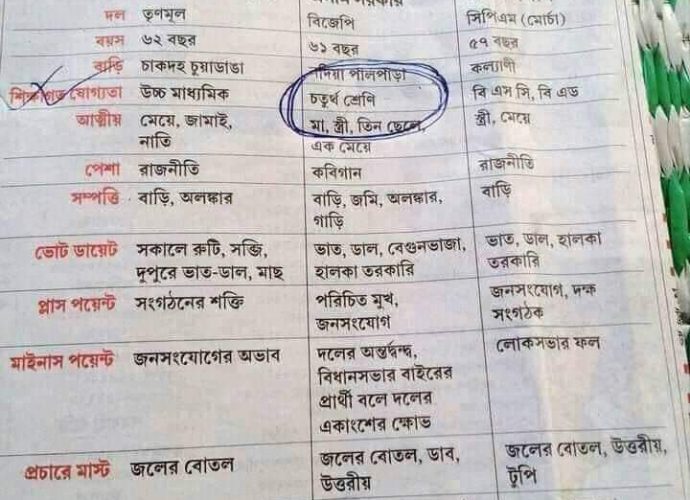 দল তৃণমূল বিজেপি সিপিএম (মোর্চা)
বয়স ৬২ বছর ৬১ বছর ৫৭ বছর
বাড়ি চাকদহ চুয়াডাঙা পালপাড়া কল্যাণী
শিক্ষাগত যোগ্যতা উচ্চ মাধ্যমিক চতুর্থ শ্রেণি বি এস সি, বি এড
আত্মীয় মেয়ে, জামাই, মা, স্ত্রী, তিন ছেলে, স্ত্রী, মেয়ে
নাতি এক মেয়ে
পেশা রাজনীতি কবিগান রাজনীতি
সম্পত্তি বাড়ি, অলঙ্কার বাড়ি, জমি, অলঙ্কার, বাড়ি
গাড়ি
ভোট ডায়েট সকালে রুটি, সব্জি, ভাত, ডাল, বেগুনভাজা, ভাত, ডাল, হালকা
দুপুরে ভাত-ডাল, মাছ হালকা তরকারি তরকারি
প্লাস পয়েন্ট সংগঠনের শক্তি পরিচিত মুখ, জনসংযোগ, দক্ষ
জনসংযোগ সংগঠক
মাইনাস পয়েন্ট জনসংযোগের অভাব দলের অন্তর্দ্বন্দ্ব, লোকসভার ফল
বিধানসভার বাইরের
প্রার্থী বলে দলের
একাংশের ক্ষোভ
প্রচারে মাস্ট জলের বোতল জলের বোতল, ডাব, জলের বোতল, উত্তরীয়,
উত্তরীয় টুপি